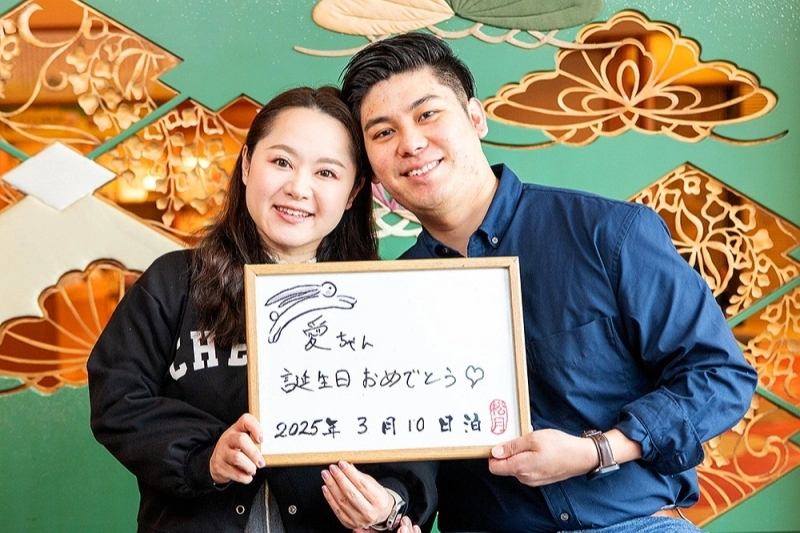 愛ちゃん
誕生日おめでとう♡
2025年 3月10日泊
松月
CHE